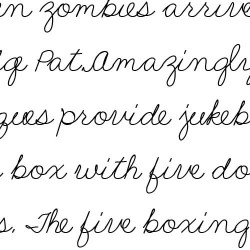 en zombies arrive
lge Pat. Amazingly
ques provide jukeb
box with five do
s. The five boxing